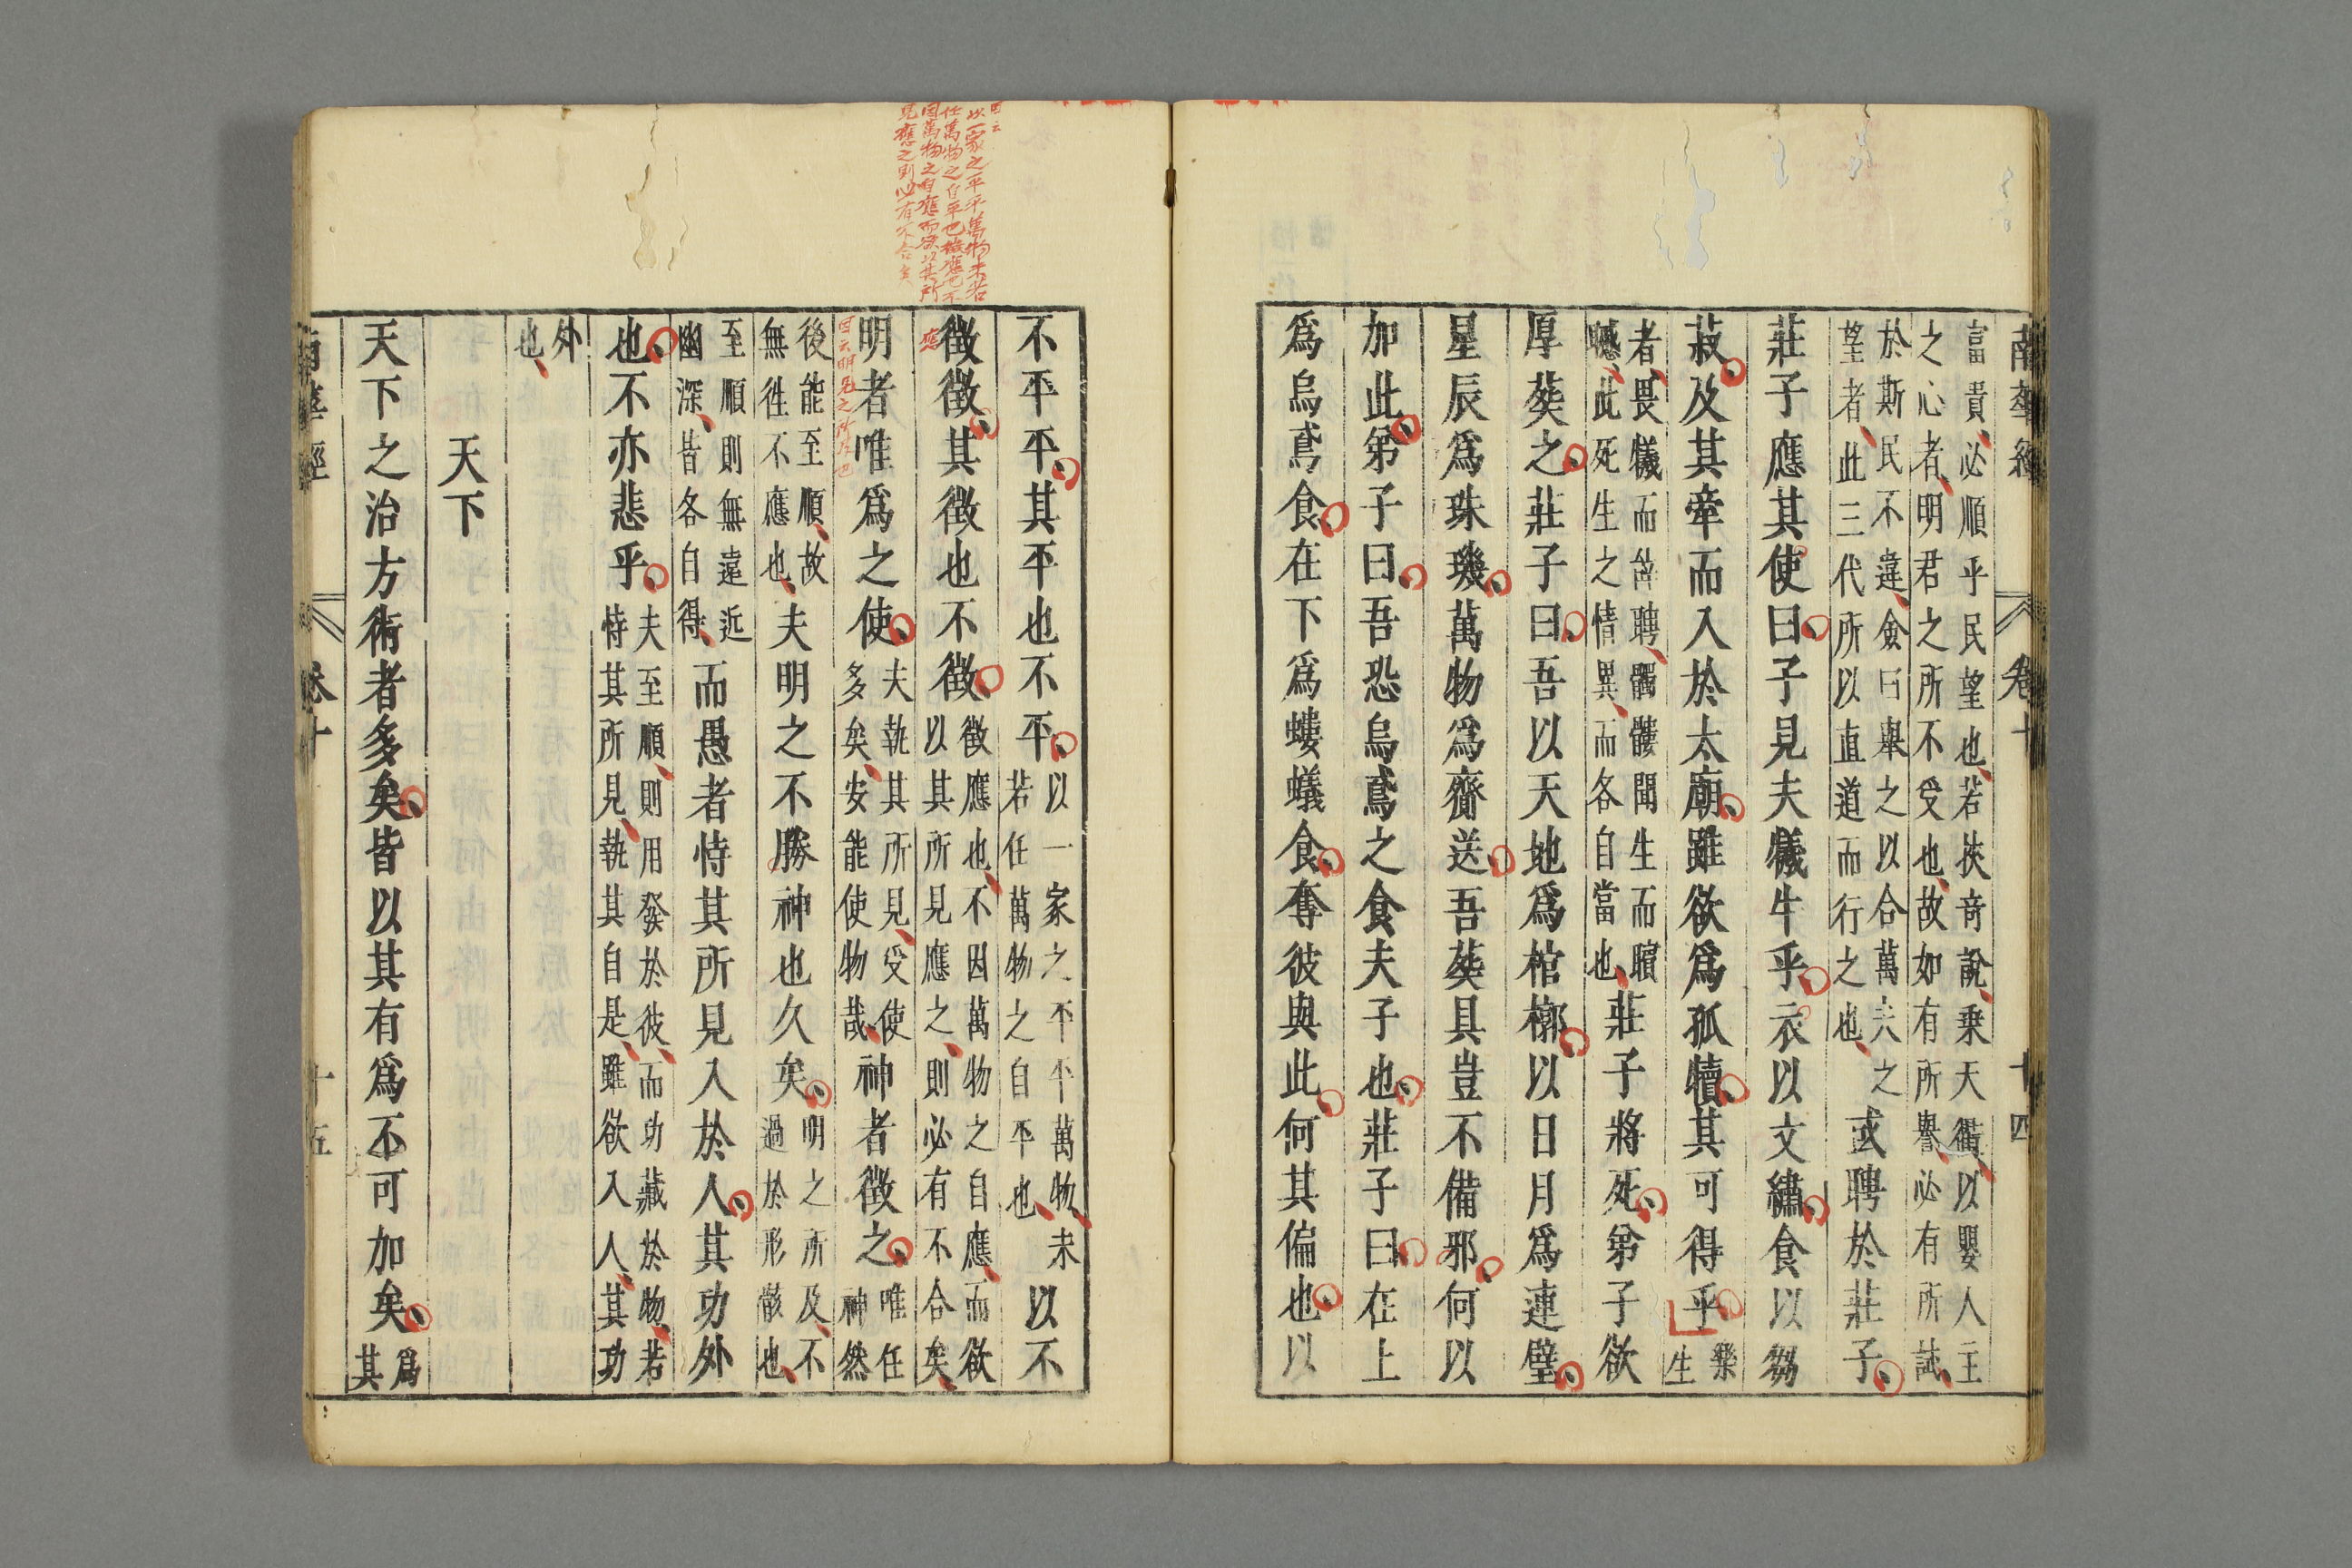 南華經 卷十 十四
富貴必順乎民望也若挾奇說乗天衢以嬰人主
之心者明君之所不受也故如有所譽必有所試
於斯民不違僉曰舉之以合萬夫之
望者此三代所以直道而行之也
或聘於莊子
莊子應其使曰子見夫犧牛乎衣以文繡食以芻
菽及其牽而入於太廟雖欲爲孤犢其可得乎
樂
生
者畏犧而辭聘髑髏聞生而矉
顣此死生之情異而各自當也
莊子將死第子欲
厚葬之莊子曰吾以天地爲棺槨以日月爲連璧
星辰爲珠璣萬物爲齎送吾葬具豈不備邪何以
加此第子曰吾恐烏鳶之食夫子也莊子曰在上
爲烏鳶食在下爲螻蟻食奪彼與此何其偏也以
不平平其平也不平
以一家之平平萬物未
若任萬物之自平也
以不
徵徵其徵也不徵
徵應也不因萬物之自應而欲
以其所見應之則必有不合矣
明者唯爲之使
夫執其所見受使
多矣安能使物哉
神者徵之
唯任
神然
後能至順故
無徃不應也
夫明之不勝神也久矣
明之所及不
過於形骸也
至順則無遠近
幽深皆各自得
而愚者恃其所見入於人其功外
也不亦悲乎
夫至順則用發於彼而功藏於物若
恃其所見執其自是雖欲入人其功
外
也
天下
天下之治方術者多矣皆以其有爲不可加矣
爲
其
南華經 卷十 十五
以一家之平平萬物未若
任萬物之自平也徵應也不
因萬物之自應而欲以其所
見應之則必有不合矣
應